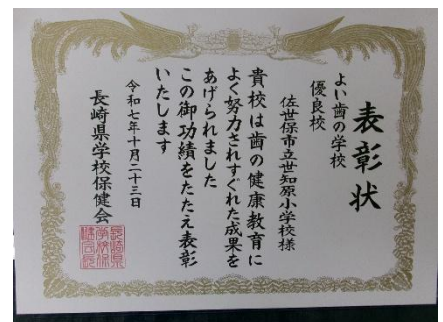 表彰状
よい歯の学校
優良校
佐世保市立世知原小学校様
貴校は歯の健康教育に
よく努力されすぐれた成果を
あげられました
この御功績をたたえ表彰
いたします
令和七年十月二十三日
長崎県学校保健会